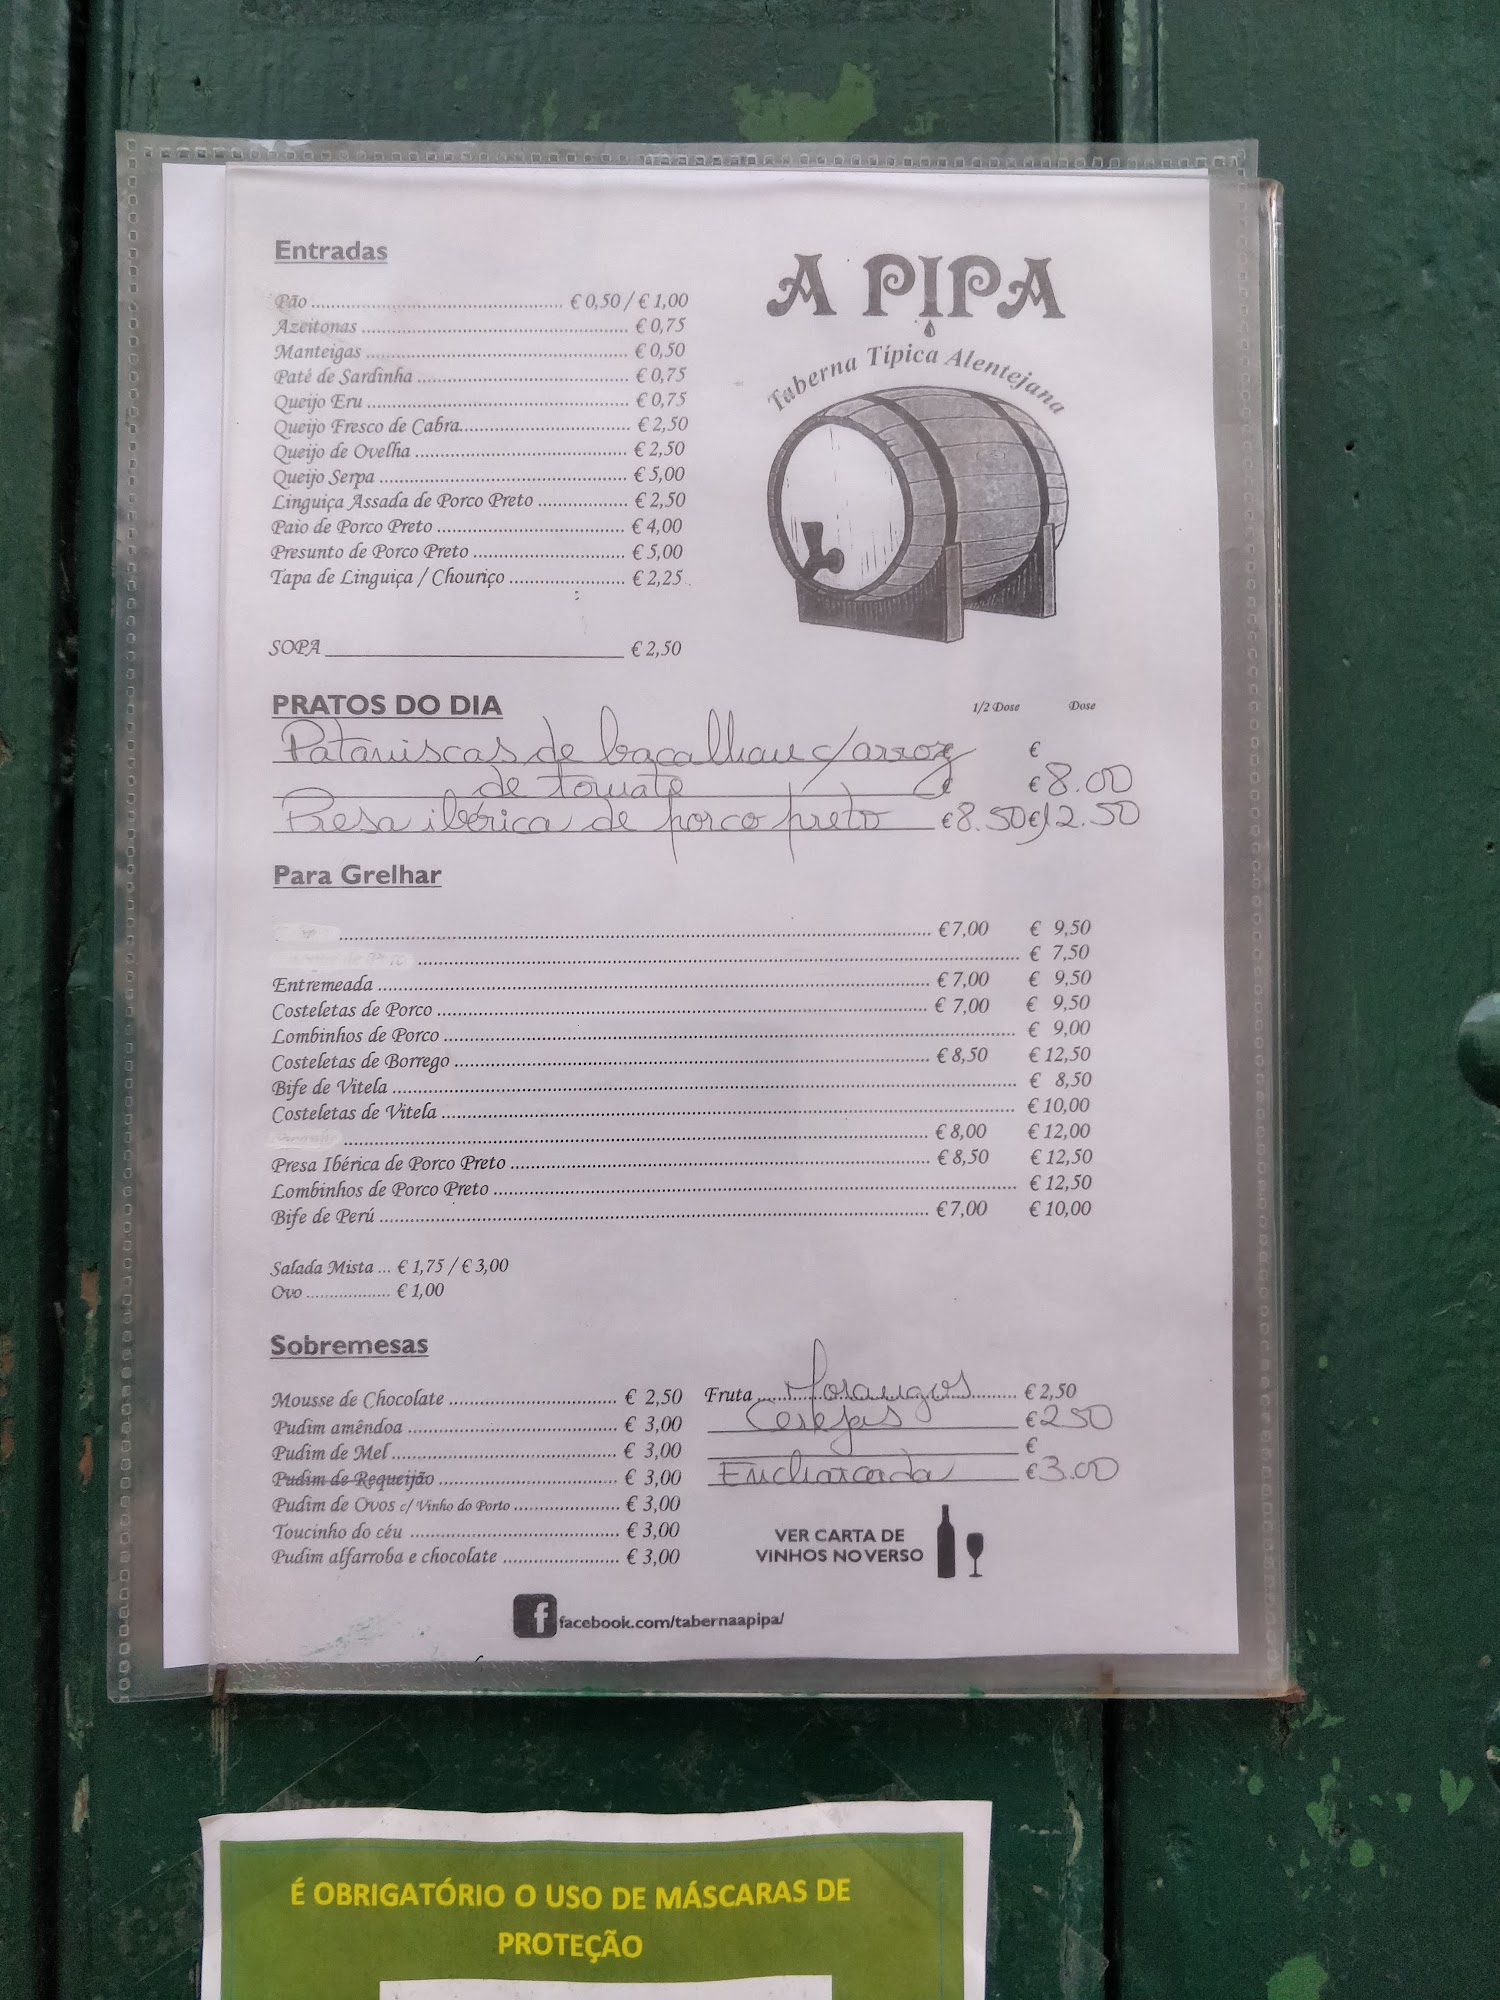 Entradas
Pão ........ € 0,50 / € 1,00
Azeitonas ........ € 0,75
Manteigas ........ € 0,50
Paté de Sardinha ........ € 0,75
Queijo Eru ........ € 0,75
Queijo Fresco de Cabra ........ € 2,50
Queijo de Ovelha ........ € 2,50
Queijo Serpa ........ € 5,00
Linguiça Assada de Porco Preto ........ € 2,50
Paio de Porco Preto ........ € 4,00
Presunto de Porco Preto ........ € 5,00
Tapa de Linguiça / Chouriço ........ € 2,25
SOPA ________ € 2,50
A PIPA
Taberna Típica Alentejana
PRATOS DO DIA 1/2 Dose Dose
Pataniscas de bacalhau c/arroz €
de tomate € €8.00
Presa ibérica de porco preto €8.50 €12.50
Para Grelhar
........ € 7,00 € 9,50
........ € 7,50
Entremeada ........ € 7,00 € 9,50
Costeletas de Porco ........ € 7,00 € 9,50
Lombinhos de Porco ........ € 9,00
Costeletas de Borrego ........ € 8,50 € 12,50
Bife de Vitela ........ € 8,50
Costeletas de Vitela ........ € 10,00
........ € 8,00 € 12,00
Presa Ibérica de Porco Preto ........ € 8,50 € 12,50
Lombinhos de Porco Preto ........ € 12,50
Bife de Perú ........ € 7,00 € 10,00
Salada Mista ... € 1,75 / € 3,00
Ovo ........ € 1,00
Sobremesas
Mousse de Chocolate ........ € 2,50
Pudim amêndoa ........ € 3,00
Pudim de Mel ........ € 3,00
Pudim de Requeijão ........ € 3,00
Pudim de Ovos c/ Vinho do Porto ........ € 3,00
Toucinho do céu ........ € 3,00
Pudim alfarroba e chocolate ........ € 3,00
Fruta Morangos ........ € 2,50
Cerejas € 2.50
€
Encharcada € 3.00
VER CARTA DE
VINHOS NO VERSO
f facebook.com/tabernaapipa/
É OBRIGATÓRIO O USO DE MÁSCARAS DE
PROTEÇÃO